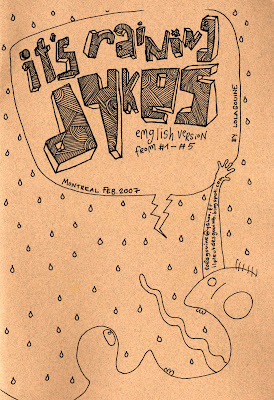 it's raining
dykes
english version
from #1 – #5
BY LOLAGOUINE
MONTREAL FEB. 2007